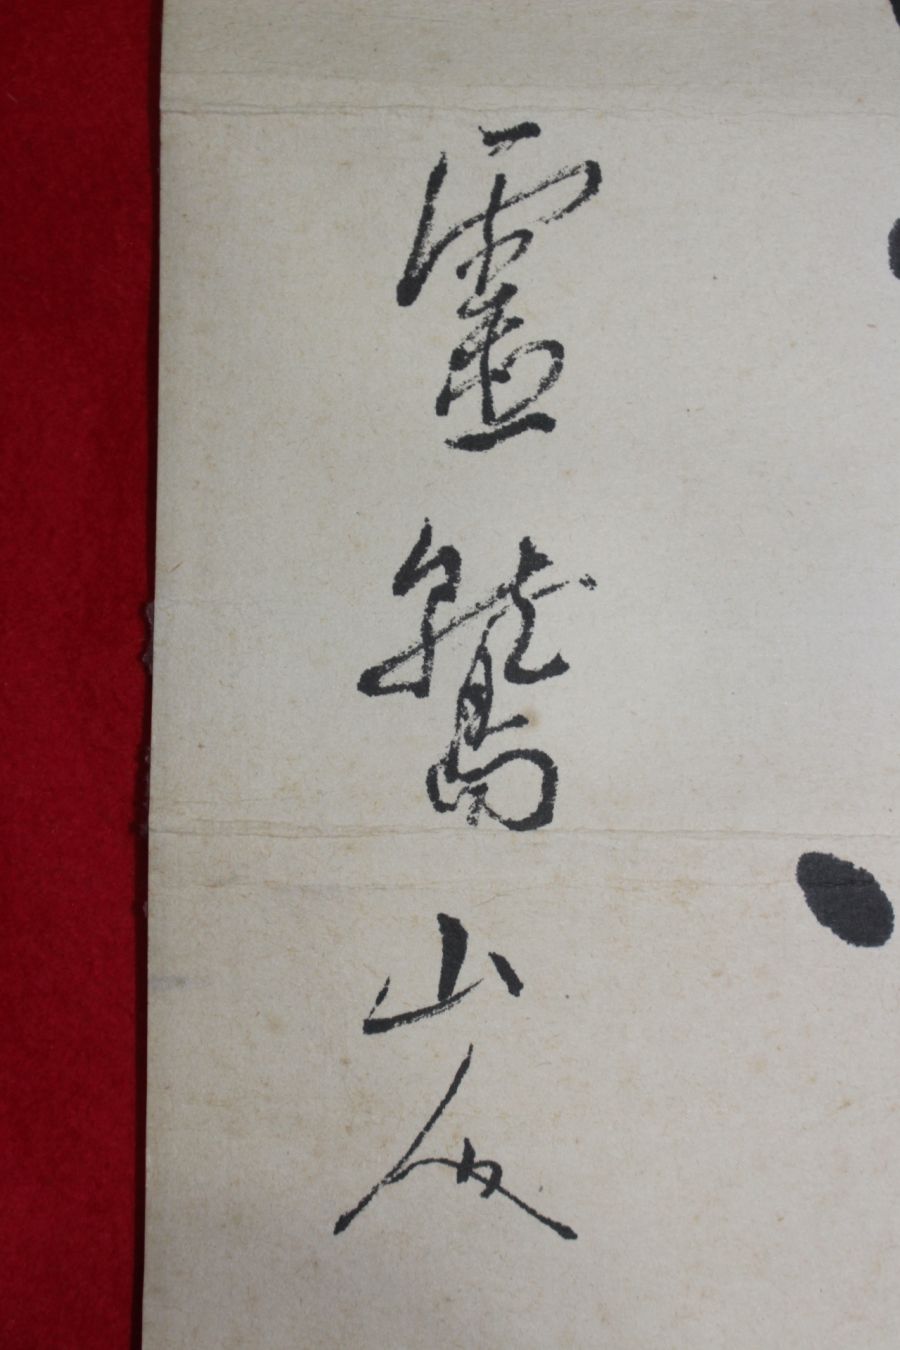 靈鷲山人